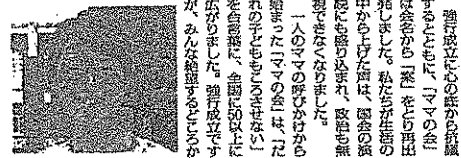 強行成立に心の底から抗議
するとともに、「ママの会」
は会名から「案」をとり再出
発しました。私たちが生活の
中から上げた声は、国会の演
説にも盛り込まれ、政治も無
視できなくなりました。
一人のママの呼びかけから
始まった「ママの会」は、「だ
れの子どももころさせない」
を合言葉に、全国に50以上に
広がりました。強行成立です
が、みんな絶望するどころか